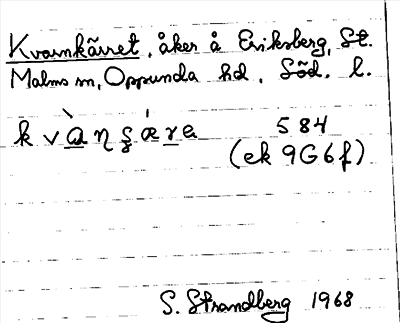 Kvarnkärret, åker å Eriksberg, St.
Malms sn, Oppunda hd, Söd. l.
584
(ek 9G6f)
S. Strandberg 1968